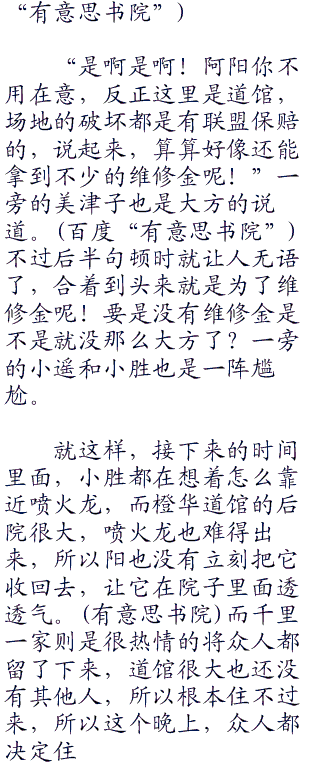 “有意思书院”)
“是啊是啊！阿阳你不
用在意，反正这里是道馆，
场地的破坏都是有联盟保赔
的，说起来，算算好像还能
拿到不少的维修金呢！”一
旁的美津子也是大方的说
道。(百度“有意思书院”)
不过后半句顿时就让人无语
了，合着到头来就是为了维
修金呢！要是没有维修金是
不是就没那么大方了？一旁
的小遥和小胜也是一阵尴
尬。
就这样，接下来的时间
里面，小胜都在想着怎么靠
近喷火龙，而橙华道馆的后
院很大，喷火龙也难得出
来，所以阳也没有立刻把它
收回去，让它在院子里面透
透气。(有意思书院)而千里
一家则是很热情的将众人都
留了下来，道馆很大也还没
有其他人，所以根本住不过
来，所以这个晚上，众人都
决定住